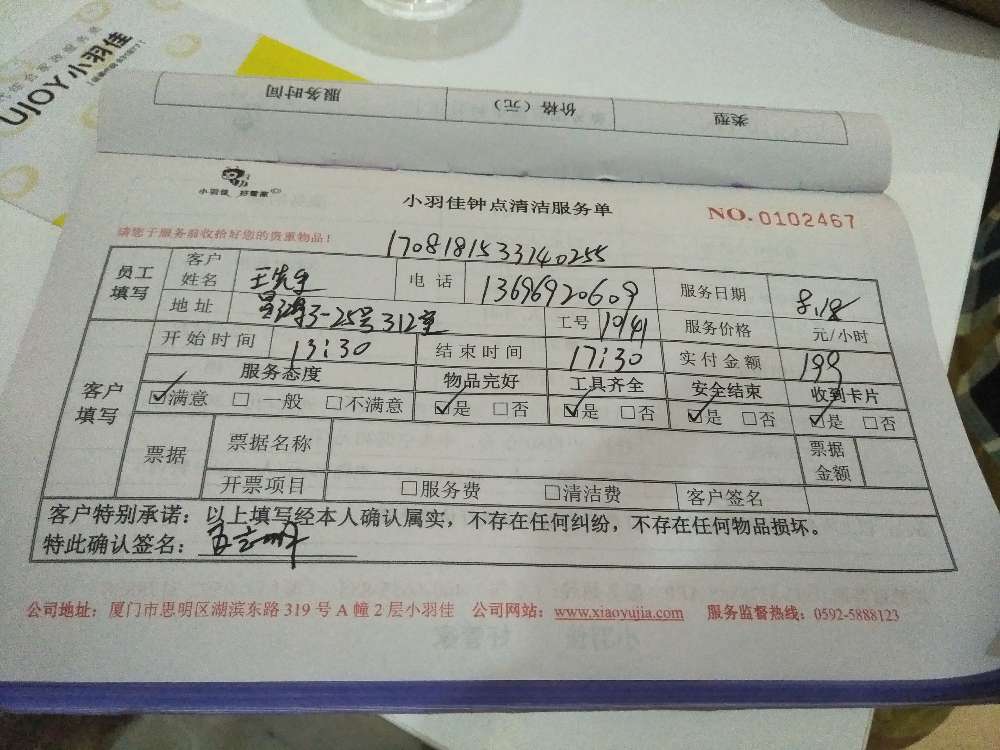 UJOY小羽佳
服务时间 价格（元） 类型
小羽佳 好管家
小羽佳钟点清洁服务单
NO.0102467
请您于服务前收拾好您的贵重物品！
1708181533140255
员工填写 客户姓名 王先生 电话 13696920609 服务日期 8.18
地址 3-25号312室 工号 1041 服务价格 元/小时
客户填写 开始时间 13:30 结束时间 17:30 实付金额 199
服务态度 物品完好 工具齐全 安全结束 收到卡片
☑满意 □一般 □不满意 ☑是 □否 ☑是 □否 ☑是 □否 ☑是 □否
票据 票据名称 票据金额
开票项目 □服务费 □清洁费 客户签名
客户特别承诺：以上填写经本人确认属实，不存在任何纠纷，不存在任何物品损坏。
特此确认签名：
公司地址：厦门市思明区湖滨东路 319 号 A 幢 2 层小羽佳 公司网站：www.xiaoyujia.com 服务监督热线：0592-5888123